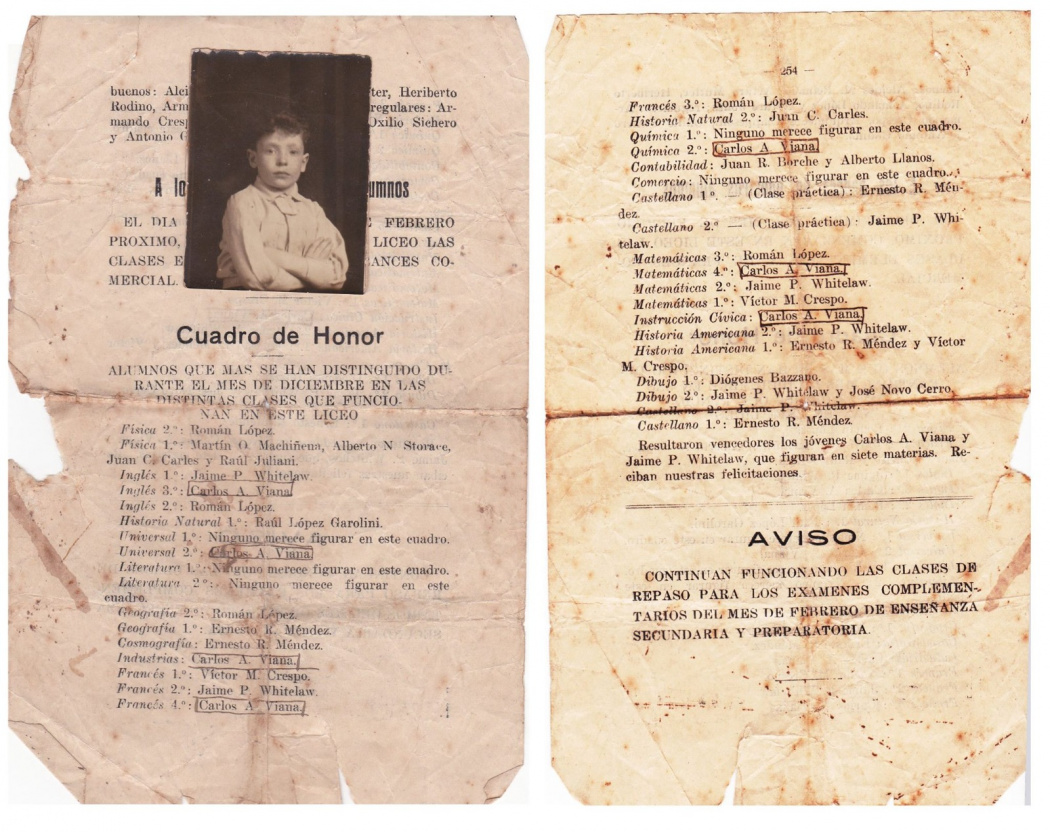 buenos: Alci ter, Heriberto
Rodino, Arm regulares: Ar-
mando Cresp Oxilio Sichero
y Antonio G
A lo umnos
EL DIA E FEBRERO
PROXIMO, LICEO LAS
CLASES E ANCES CO-
MERCIAL.
Cuadro de Honor
ALUMNOS QUE MAS SE HAN DISTINGUIDO DU-
RANTE EL MES DE DICIEMBRE EN LAS
DISTINTAS CLASES QUE FUNCIO-
NAN EN ESTE LICEO
Física 2.º: Román López.
Física 1.º: Martín O. Machiñena, Alberto N. Storace,
Juan C. Carles y Raúl Juliani.
Inglés 1.º: Jaime P. Whitelaw.
Inglés 3.º: Carlos A. Viana.
Inglés 2.º: Román López.
Historia Natural 1.º: Raúl López Garolini.
Universal 1.º: Ninguno merece figurar en este cuadro.
Universal 2.º: Carlos A. Viana.
Literatura 1.º: Ninguno merece figurar en este cuadro.
Literatura 2.º: Ninguno merece figurar en este
cuadro.
Geografía 2.º: Román López.
Geografía 1.º: Ernesto R. Méndez.
Cosmografía: Ernesto R. Méndez.
Industrias: Carlos A. Viana.
Francés 1.º: Víctor M. Crespo.
Francés 2.º: Jaime P. Whitelaw.
Francés 4.º: Carlos A. Viana.
— 254 —
Francés 3.º: Román López.
Historia Natural 2.º: Juan C. Carles.
Química 1.º: Ninguno merece figurar en este cuadro.
Química 2.º: Carlos A. Viana.
Contabilidad: Juan R. Borche y Alberto Llanos.
Comercio: Ninguno merece figurar en este cuadro.
Castellano 1º. — (Clase práctica): Ernesto R. Mén-
dez.
Castellano 2.º — (Clase práctica): Jaime P. Whi-
telaw.
Matemáticas 3.º: Román López.
Matemáticas 4.º: Carlos A. Viana.
Matemáticas 2.º: Jaime P. Whitelaw.
Matemáticas 1.º: Víctor M. Crespo.
Instrucción Cívica: Carlos A. Viana.
Historia Americana 2.º: Jaime P. Whitelaw.
Historia Americana 1.º: Ernesto R. Méndez y Víctor
M. Crespo.
Dibujo 1.º: Diógenes Bazzano.
Dibujo 2.º: Jaime P. Whitelaw y José Novo Cerro.
Castellano 2.º: Jaime P. Whitelaw.
Castellano 1.º: Ernesto R. Méndez.
Resultaron vencedores los jóvenes Carlos A. Viana y
Jaime P. Whitelaw, que figuran en siete materias. Re-
ciban nuestras felicitaciones.
AVISO
CONTINUAN FUNCIONANDO LAS CLASES DE
REPASO PARA LOS EXAMENES COMPLEMEN-
TARIOS DEL MES DE FEBRERO DE ENSEÑANZA
SECUNDARIA Y PREPARATORIA.